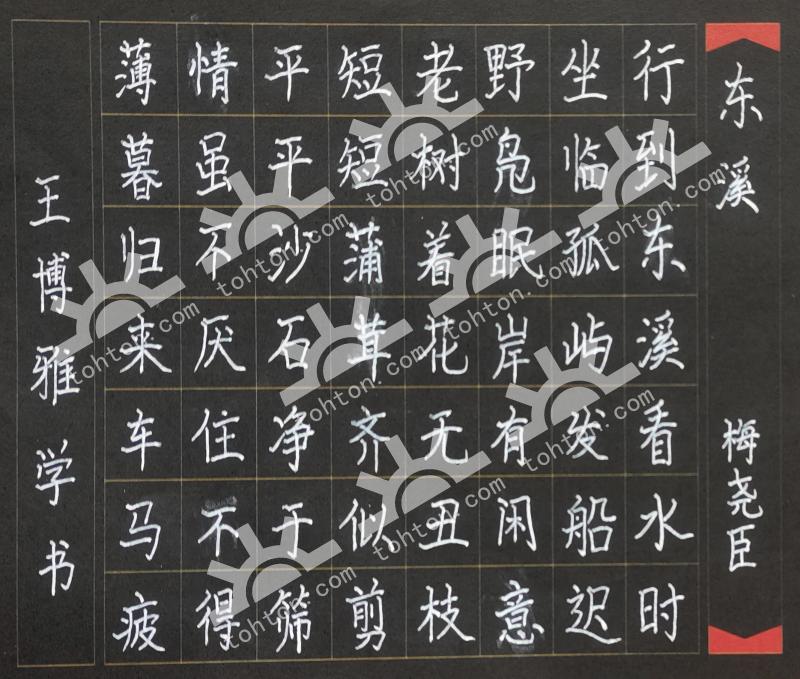 东溪
梅尧臣
行到东溪看水时
坐临孤屿发船迟
野凫眠岸有闲意
老树着花无丑枝
短短蒲茸齐似剪
平平沙石净于筛
情虽不厌住不得
薄暮归来车马疲
王博雅学书
tohton.com
tohton.com
tohton.com
tohton.com
tohton.com
tohton.com
tohton.com
tohton.com
tohton.com